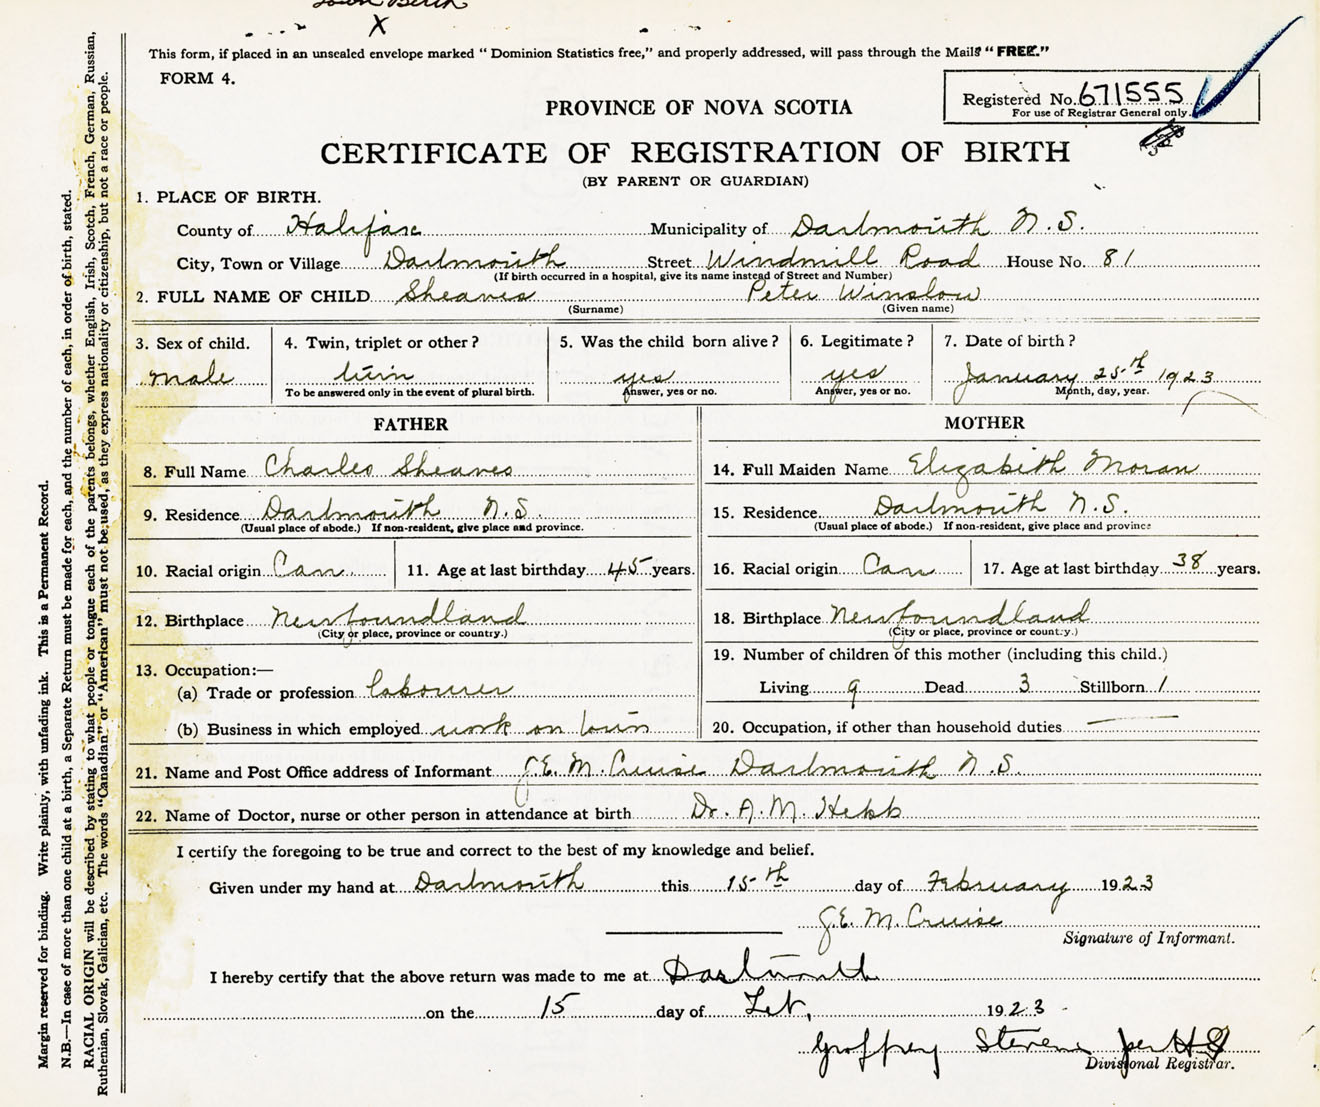 X
This form, if placed in an unsealed envelope marked " Dominion Statistics free," and properly addressed, will pass through the Mails " FREE."
FORM 4.
Registered No. 671555
For use of Registrar General only.
PROVINCE OF NOVA SCOTIA
CERTIFICATE OF REGISTRATION OF BIRTH
(BY PARENT OR GUARDIAN)
1. PLACE OF BIRTH.
County of Halifax Municipality of Dartmouth N.S.
City, Town or Village Dartmouth Street Windmill Road House No. 81
(If birth occurred in a hospital, give its name instead of Street and Number)
2. FULL NAME OF CHILD Sheaves Peter Winslow
(Surname) (Given name)
3. Sex of child. 4. Twin, triplet or other? 5. Was the child born alive? 6. Legitimate? 7. Date of birth?
male twin yes yes January 25th 1923
To be answered only in the event of plural birth. Answer, yes or no. Answer, yes or no. Month, day, year.
FATHER
8. Full Name Charles Sheaves
9. Residence Dartmouth N.S.
(Usual place of abode.) If non-resident, give place and province.
10. Racial origin Can. 11. Age at last birthday 45 years.
12. Birthplace Newfoundland
(City or place, province or country.)
13. Occupation:—
(a) Trade or profession labourer
(b) Business in which employed work on town
MOTHER
14. Full Maiden Name Elizabeth Moran
15. Residence Dartmouth N.S.
(Usual place of abode.) If non-resident, give place and province
16. Racial origin Can 17. Age at last birthday 38 years.
18. Birthplace Newfoundland
(City or place, province or country.)
19. Number of children of this mother (including this child.)
Living 9 Dead 3 Stillborn 1
20. Occupation, if other than household duties —
21. Name and Post Office address of Informant J.E.M. Cruise Dartmouth N.S.
22. Name of Doctor, nurse or other person in attendance at birth Dr. A.M. Hebb
I certify the foregoing to be true and correct to the best of my knowledge and belief.
Given under my hand at Dartmouth this 15th day of February 1923
J.E.M. Cruise
Signature of Informant.
I hereby certify that the above return was made to me at Dartmouth
on the 15 day of Feb, 1923
Geoffrey Stevens per
Divisional Registrar.
Margin reserved for binding. Write plainly, with unfading ink. This is a Permanent Record.
N.B.—In case of more than one child at a birth, a Separate Return must be made for each, and the number of each, in order of birth, stated.
RACIAL ORIGIN will be described by stating to what people or tongue each of the parents belongs, whether English, Irish, Scotch, French, German, Russian,
Ruthenian, Slovak, Galician, etc. The words "Canadian" or "American" must not be used, as they express nationality or citizenship, but not a race or people.